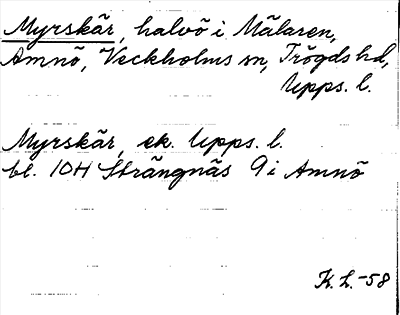 Myrskär, halvö i Mälaren,
Amnö, Veckholms sn, Trögds hd,
Upps. l.
Myrskär, ek. Upps. l.
bl. 10H Strängnäs 9i Amnö
K. L. -58